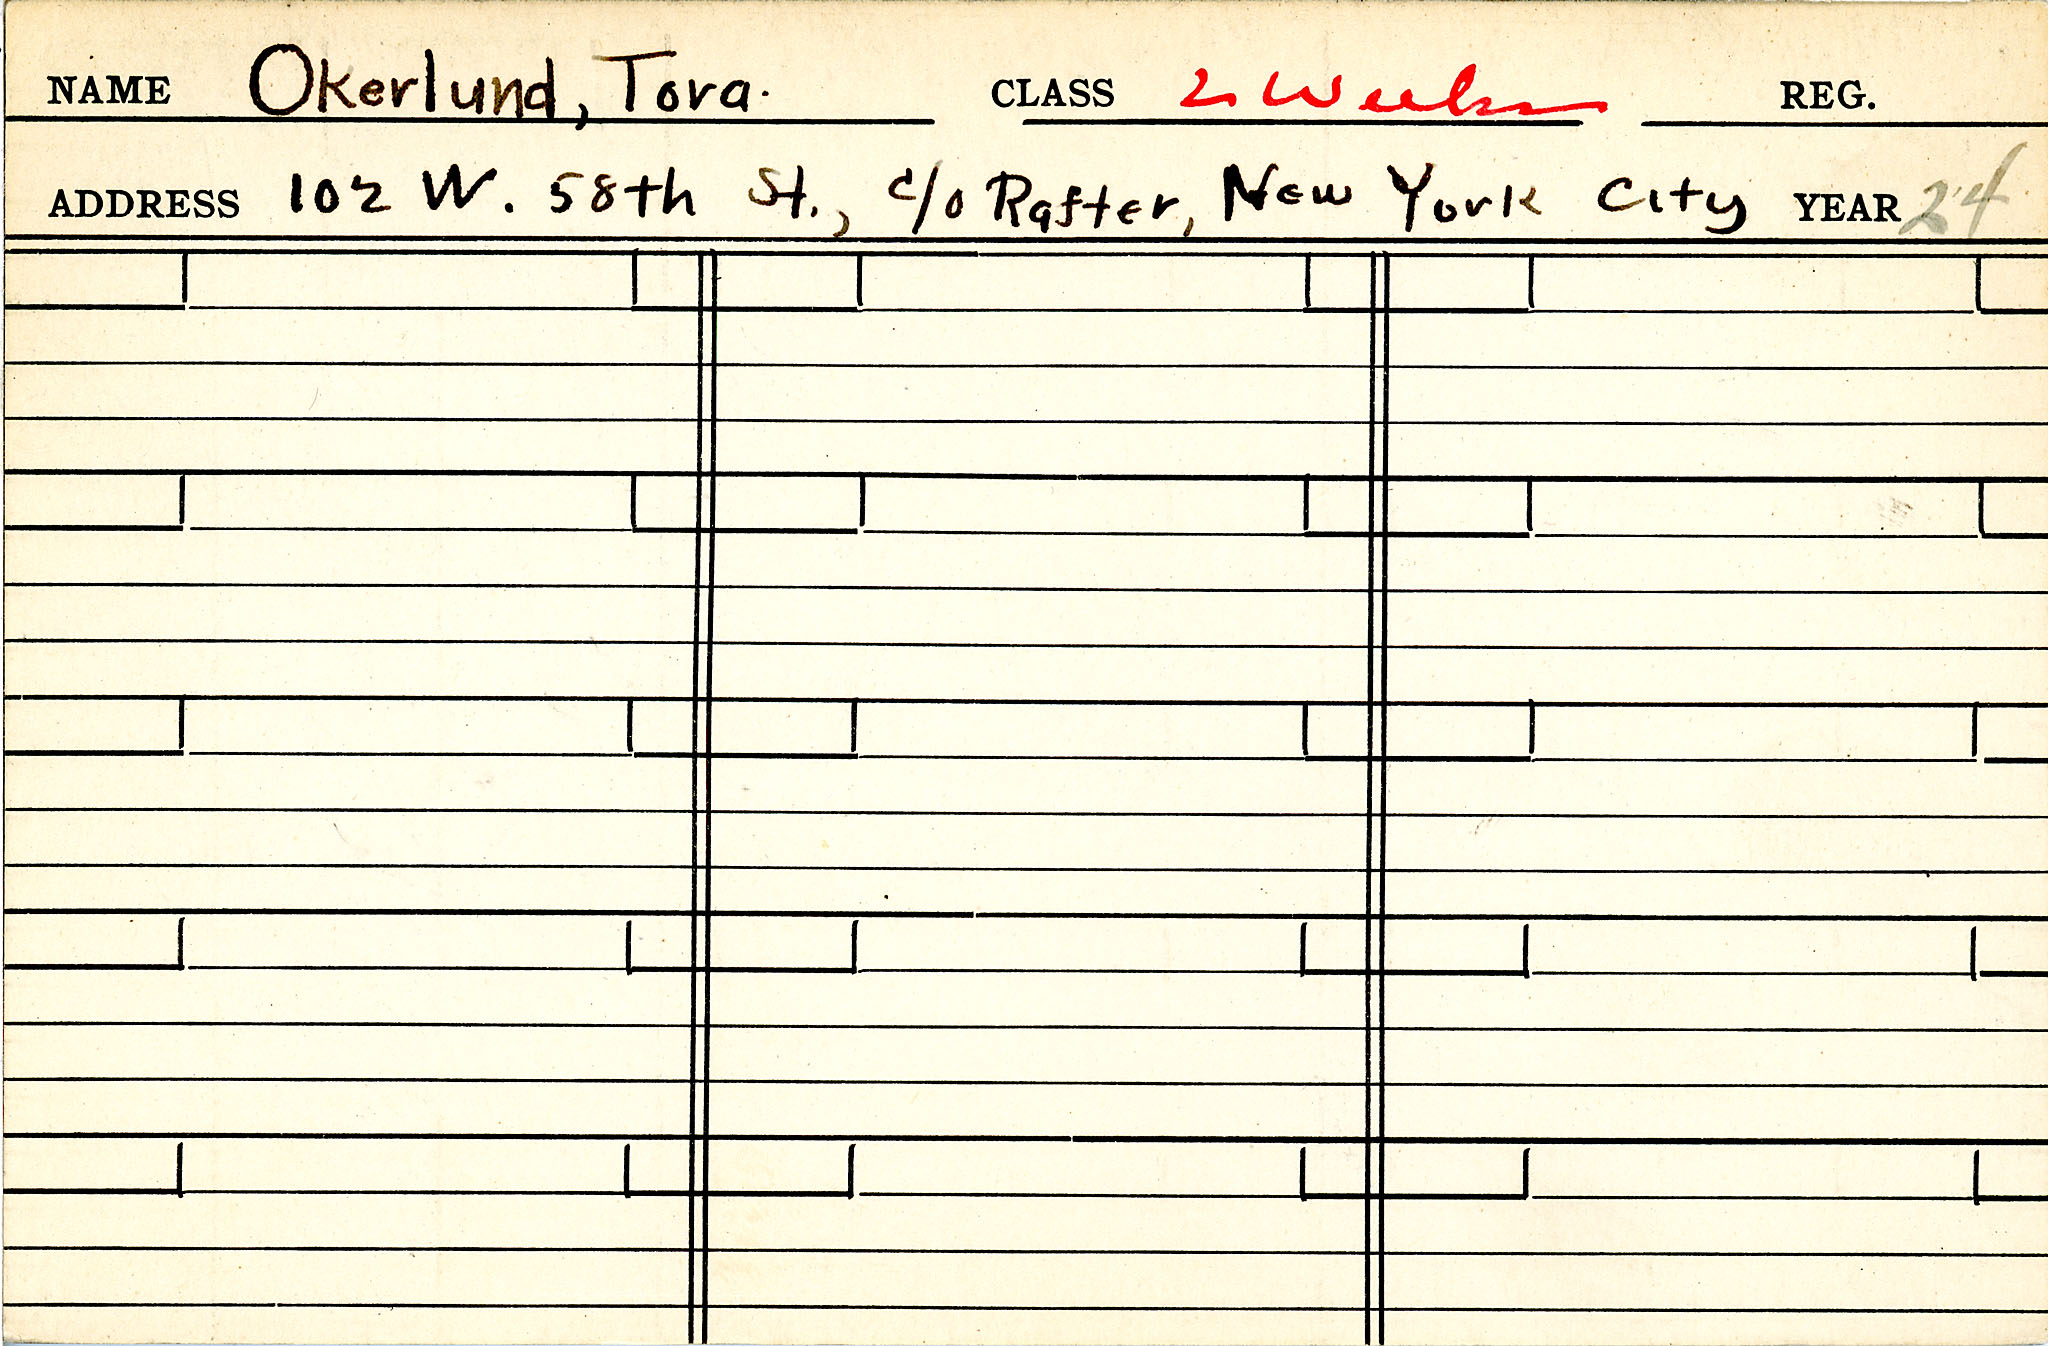 NAME Okerlund, Tora. CLASS 2 Weeks REG.
ADDRESS 102 W. 58th St., c/o Rafter, New York City YEAR 24